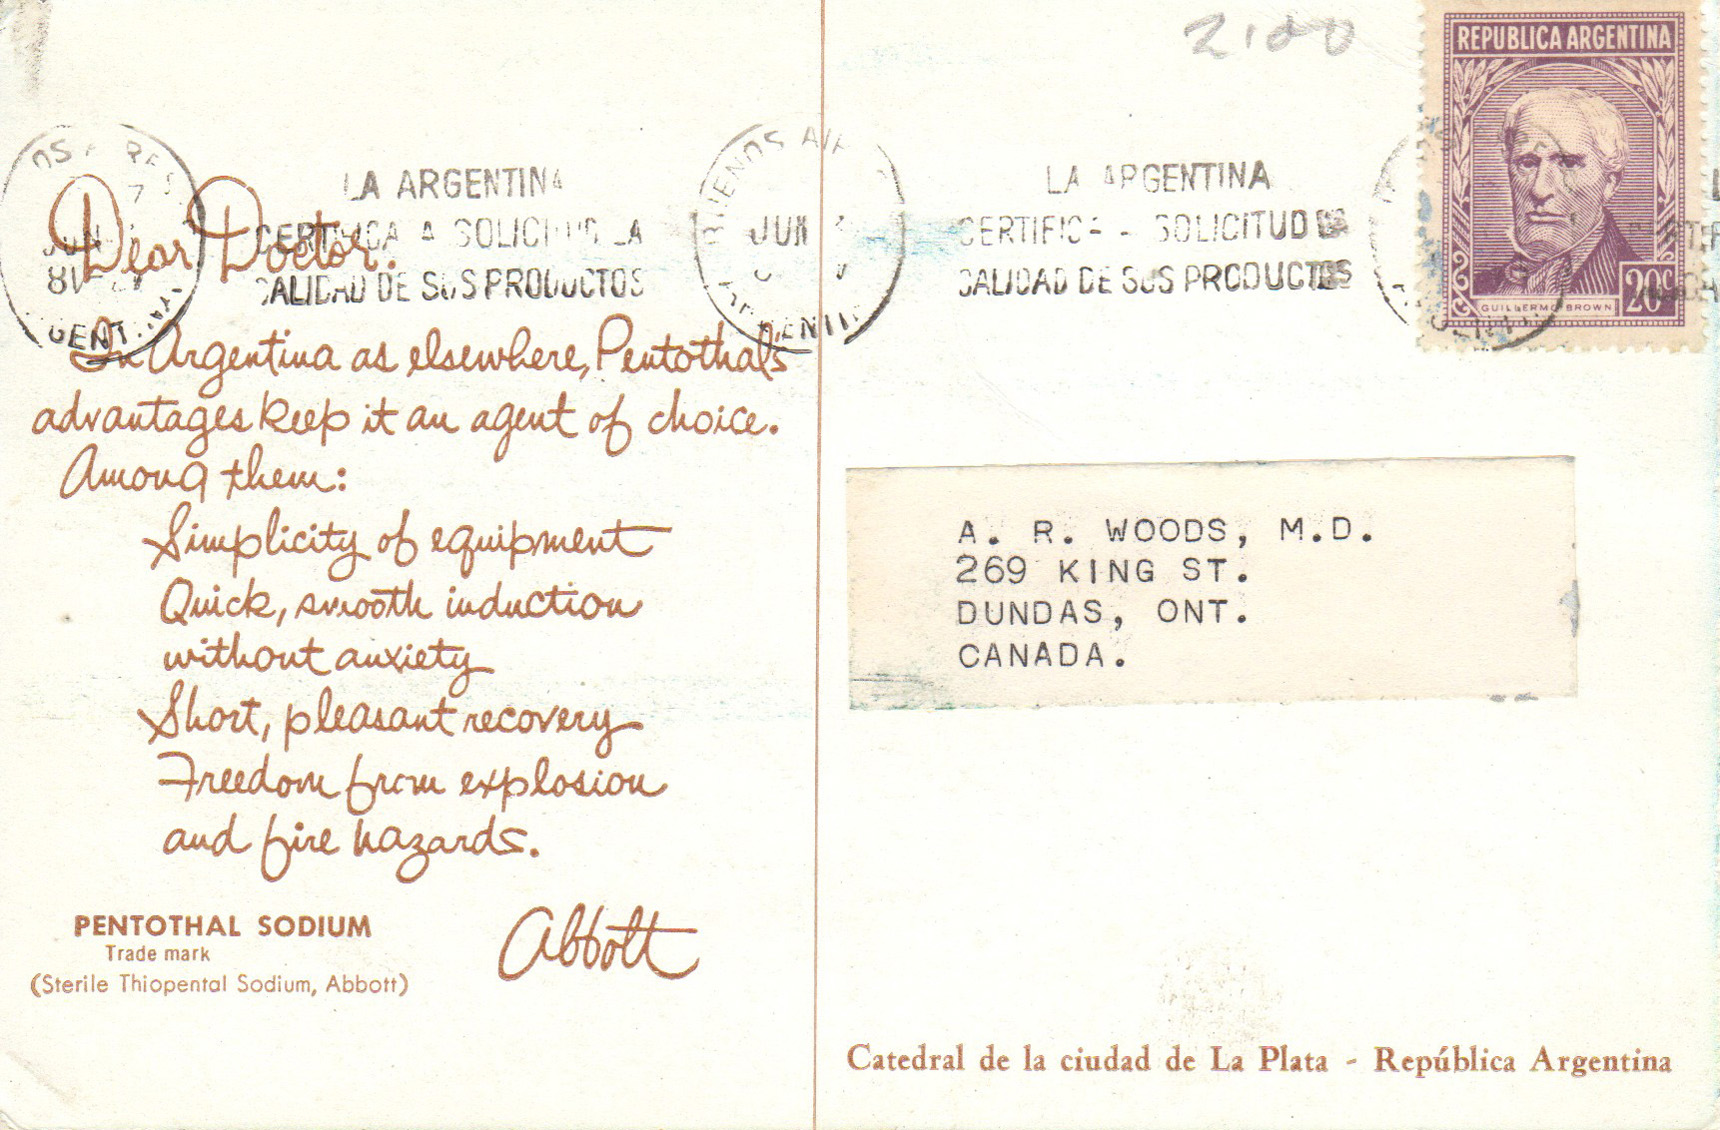 2180
REPUBLICA ARGENTINA
GUILLERMO BROWN
20c
BUENOS AIRES
JUN
LA ARGENTINA
CERTIFICA A SOLICITUD LA
CALIDAD DE SUS PRODUCTOS
BUENOS AIRES
JUN
ARGENTINA
LA ARGENTINA
CERTIFICA A SOLICITUD LA
CALIDAD DE SUS PRODUCTOS
Dear Doctor:
In Argentina as elsewhere, Pentothal's
advantages keep it an agent of choice.
Among them:
Simplicity of equipment
Quick, smooth induction
without anxiety
Short, pleasant recovery
Freedom from explosion
and fire hazards.
Abbott
PENTOTHAL SODIUM
Trade mark
(Sterile Thiopental Sodium, Abbott)
A. R. WOODS, M.D.
269 KING ST.
DUNDAS, ONT.
CANADA.
Catedral de la ciudad de La Plata - República Argentina